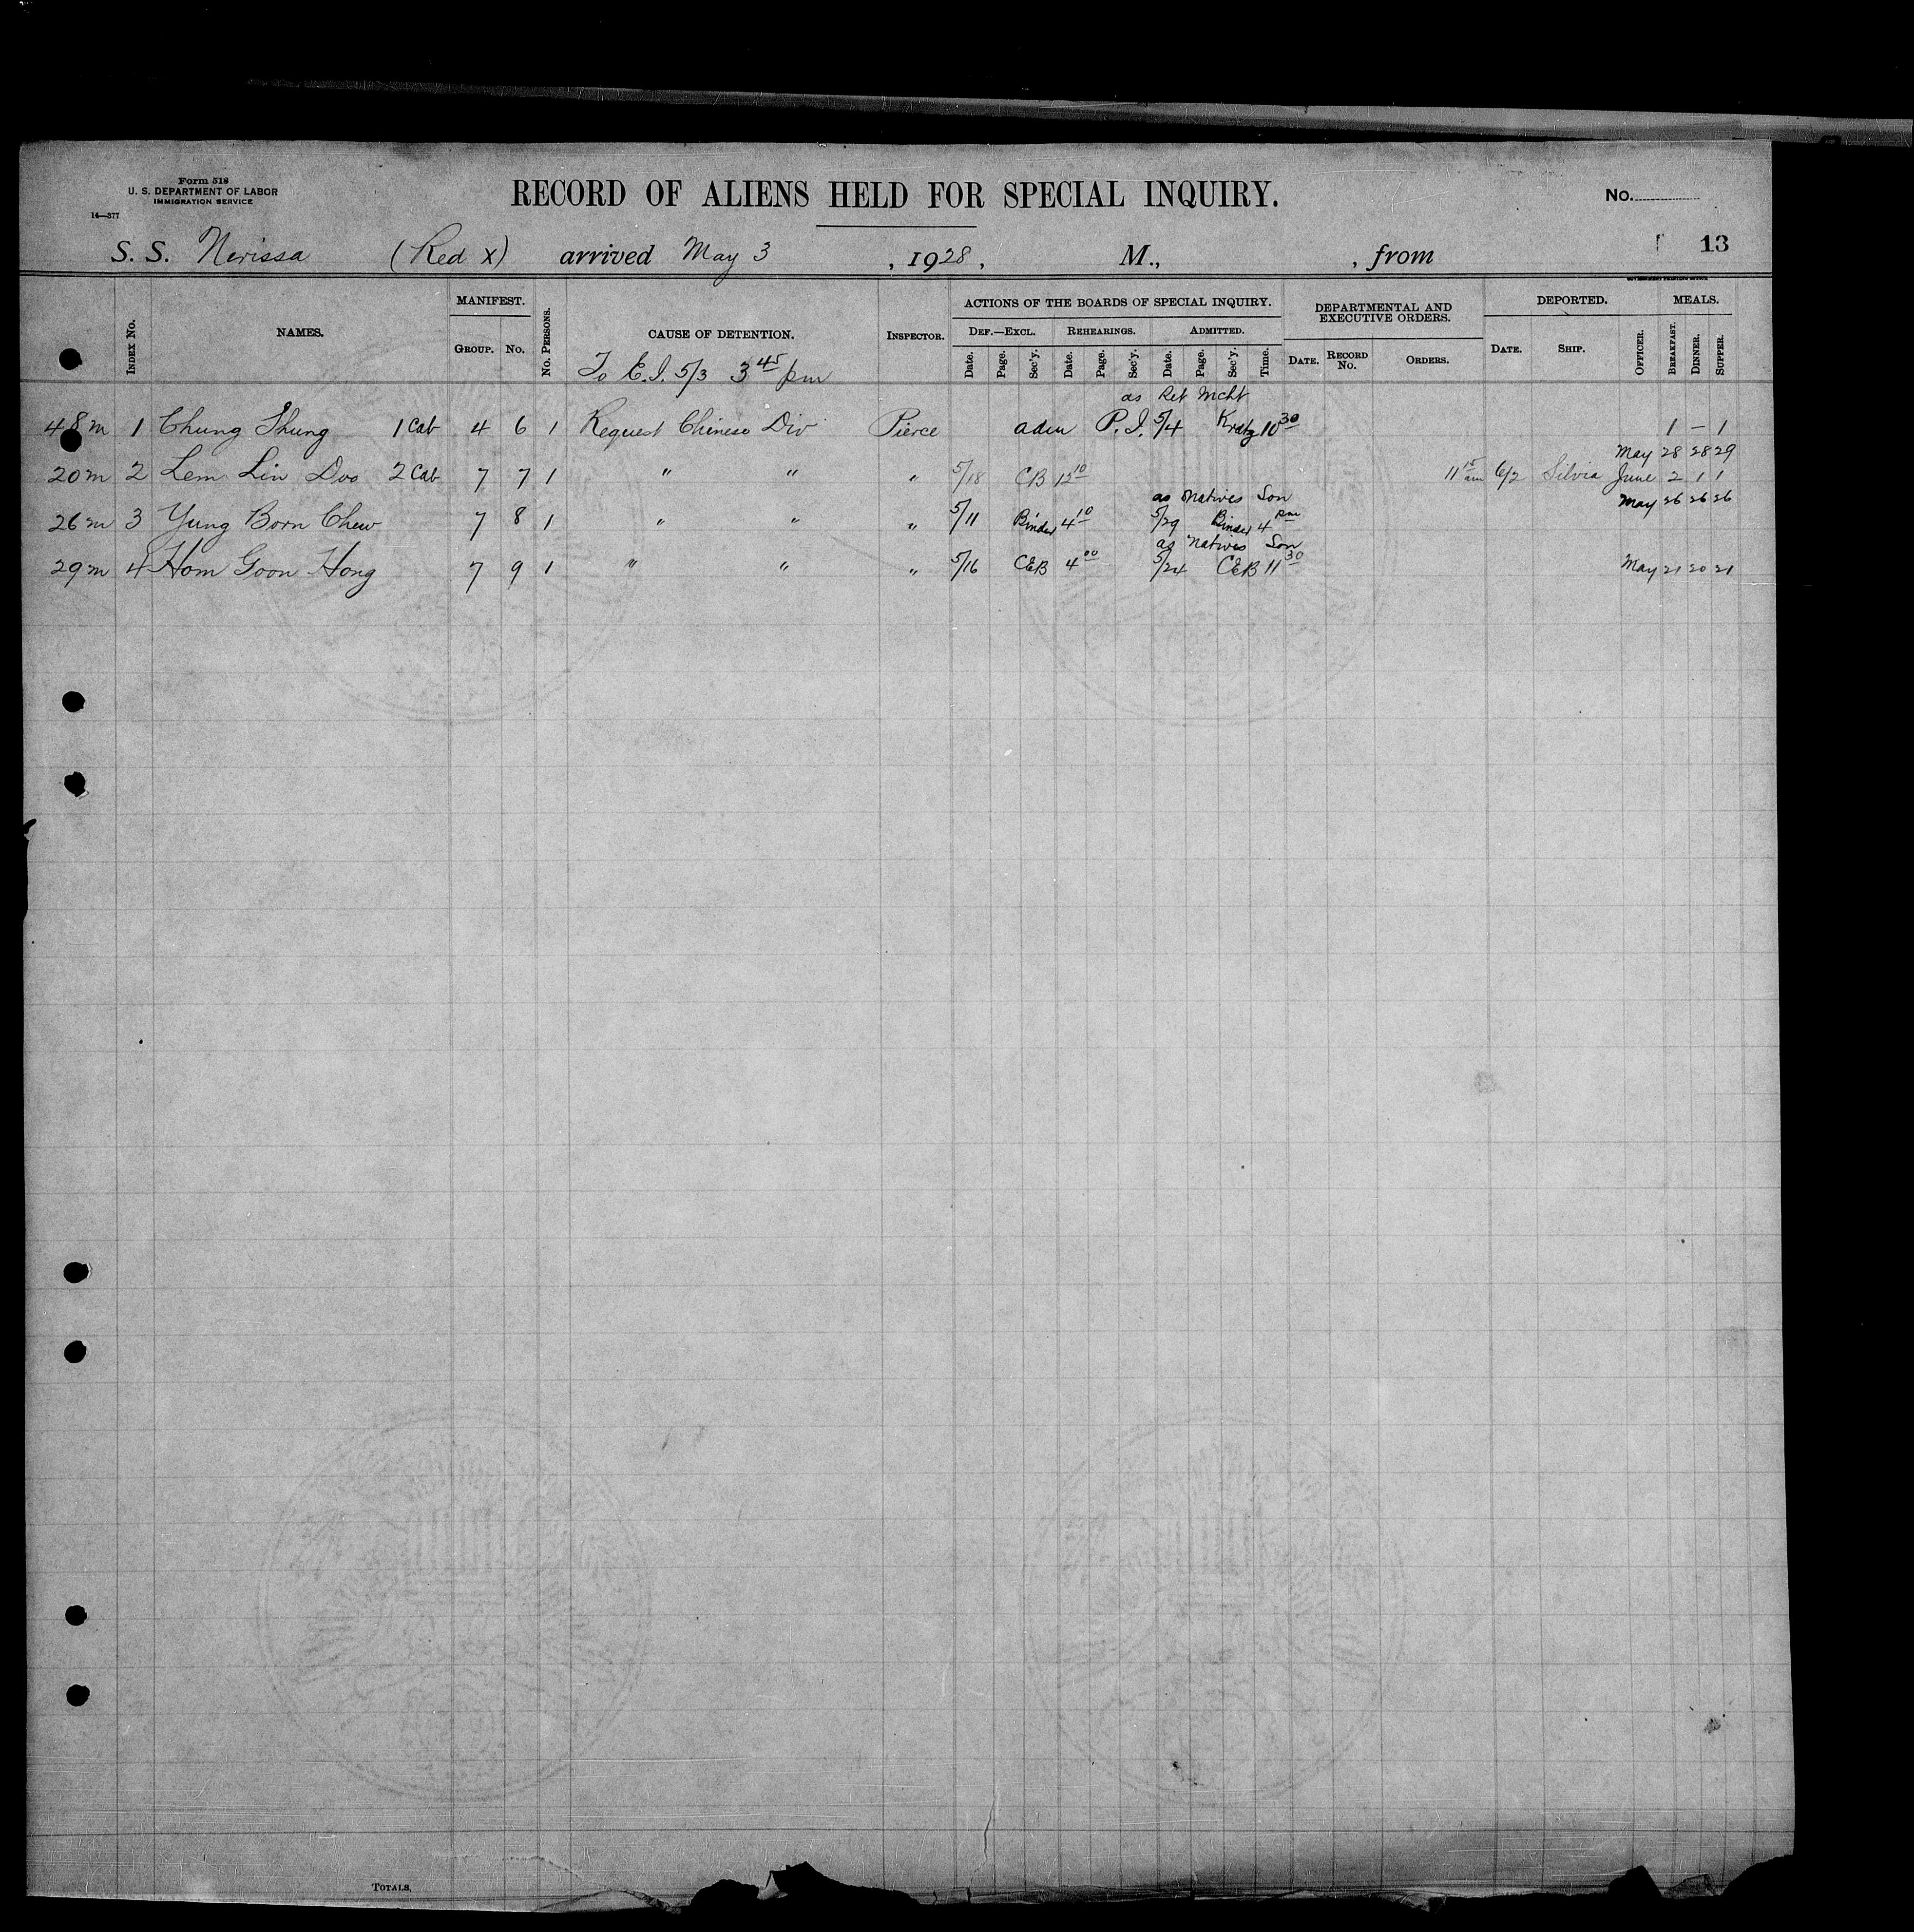 Form 518
U. S. DEPARTMENT OF LABOR
IMMIGRATION SERVICE
14—377
RECORD OF ALIENS HELD FOR SPECIAL INQUIRY.
No.
S. S. Nerissa (Red X) arrived May 3, 1928, M., , from
13
INDEX No. NAMES. MANIFEST. GROUP. No. No. PERSONS. CAUSE OF DETENTION. INSPECTOR. ACTIONS OF THE BOARDS OF SPECIAL INQUIRY. DEF.—EXCL. Date. Page. Sec'y. REHEARINGS. Date. Page. Sec'y. ADMITTED. Date. Page. Sec'y. Time. DEPARTMENTAL AND EXECUTIVE ORDERS. DATE. RECORD No. ORDERS. DEPORTED. DATE. SHIP. OFFICER. MEALS. BREAKFAST. DINNER. SUPPER.
To E.I. 5/3 3 45 pm
as Ret Mcht
48 m 1 Chung Shung 1 Cab 4 6 1 Request Chinese Div Pierce adm P.I. 5/4 Kratz 10 30 1 – 1
May 28 28 29
20 m 2 Lem Lin Doo 2 Cab 7 7 1 " " " 5/18 CB 12 10 11 15 am 6/2 Silvia June 2 1 1
as Natives Son May 26 26 26
26 m 3 Yung Born Chew 7 8 1 " " " 5/11 Binder 4 10 5/29 Binder 4 pm
as Natives Son
29 m 4 Hom Goon Hong 7 9 1 " " " 5/16 CEB 4 00 5/24 CEB 11 30 May 21 20 21
TOTALS.